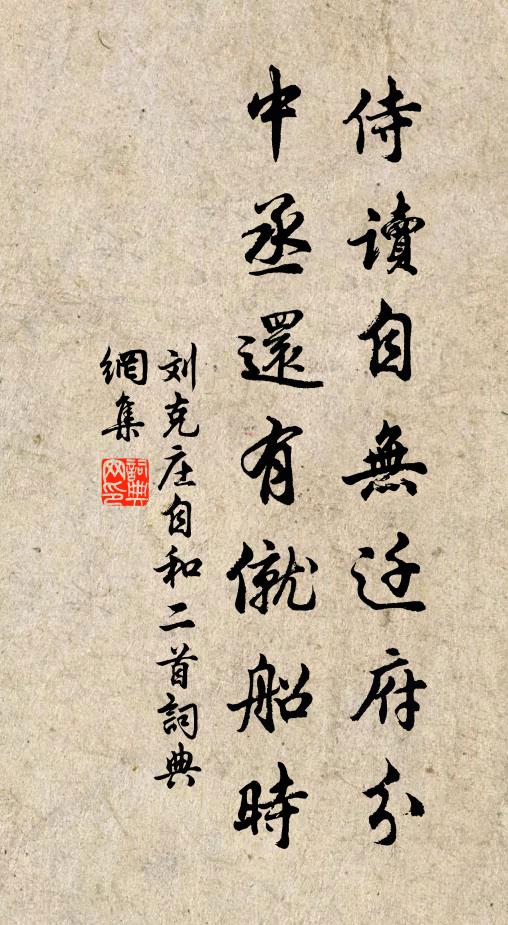 侍讀自無迁府分
中丞還有僦船時
刘克庄自和二首詞典
網集
詞典网印